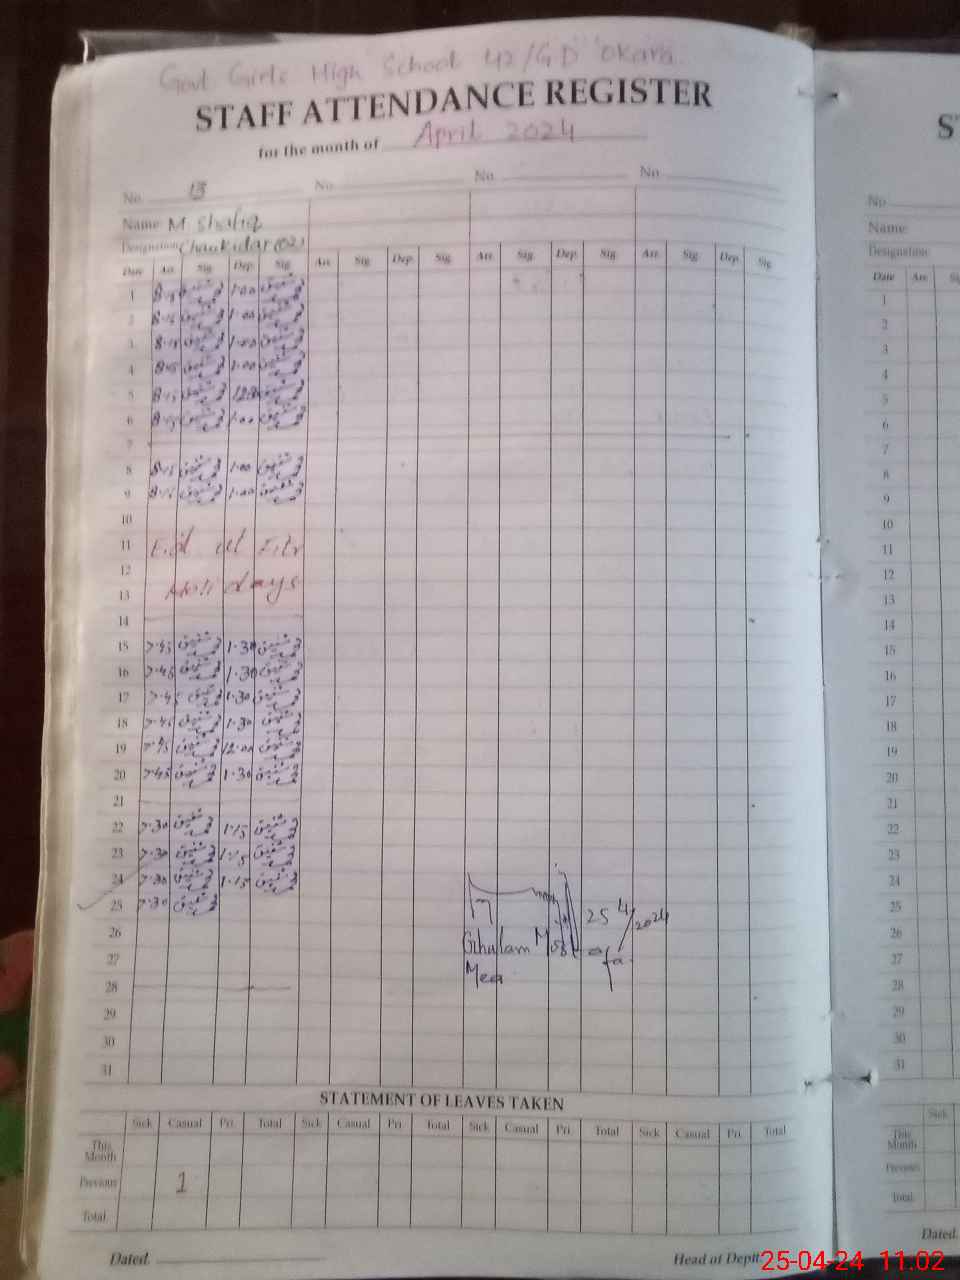 Govt Girls High School 42/GD Okara.
STAFF ATTENDANCE REGISTER
for the month of April 2024
No. 13 No. No. No.
Name M Shafiq
Designation Chaukidar (02)
Date Arr. Sig. Dep. Sig. Arr. Sig. Dep. Sig. Arr. Sig. Dep. Sig. Arr. Sig. Dep. Sig.
1 8-15 1-00
2 8-15 1-00
3 8-15 1-00
4 8-15 1-00
5 8-15
6 8-15 1-00
7
8 8-15 1-00
9 8-15 1-00
10
11 Eid ul Fitr
12
13 Holidays
14
15 7-45 1-30
16 7-45 1-30
17 7-45 1-30
18 7-45 1-30
19 7-45 12-00
20 7-45 1-30
21
22 7-30 1-15
23 7-30 1-15
24 7-30 1-15
25 7-30
25/4/2024
26
Ghulam
27
Mea
28
29
30
31
STATEMENT OF LEAVES TAKEN
Sick Casual Pri. Total Sick Casual Pri. Total Sick Casual Pri. Total Sick Casual Pri. Total
This Month
Previous 1
Total
Dated. Head of Deptt.
S
No
Name
Designation
Date Arr.
1
2
3
4
5
6
7
8
9
10
11
12
13
14
15
16
17
18
19
20
21
22
23
24
25
26
27
28
29
30
31
Sick
This Month
Previous
Total
Dated.
25-04-24 11:02